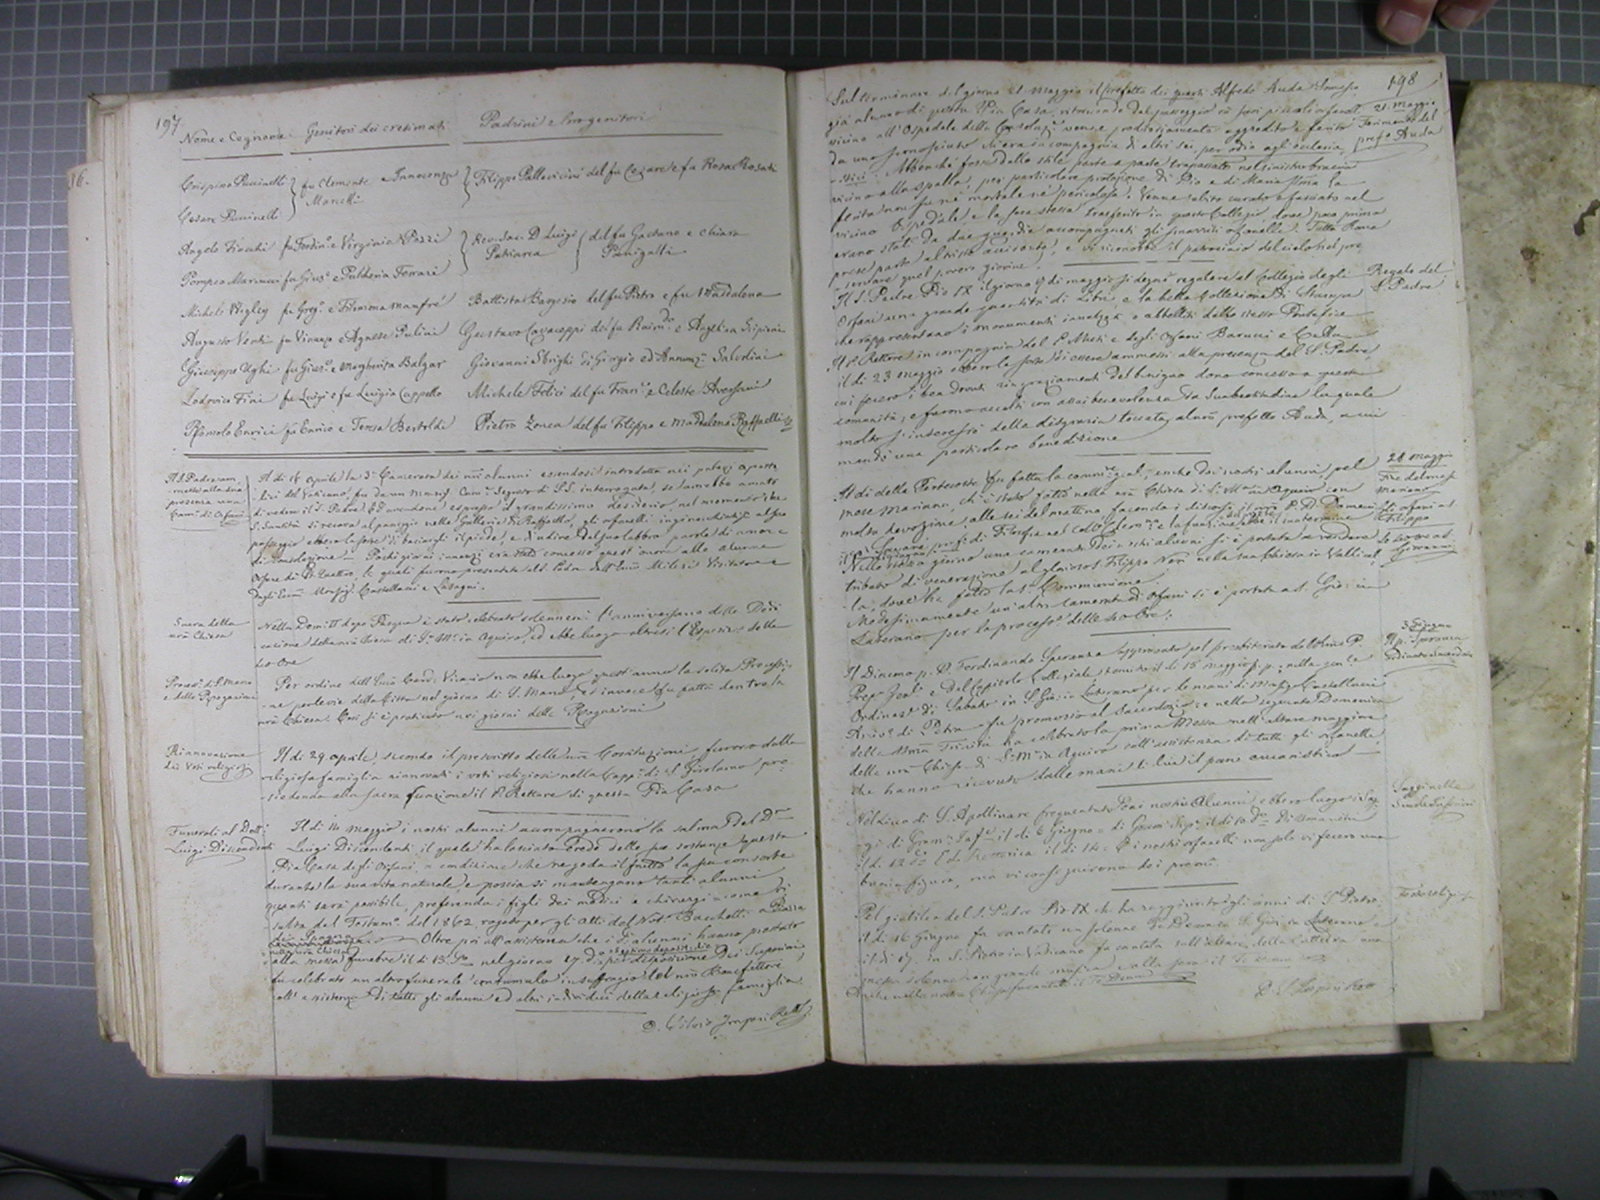 197
Nome e Cognome Genitori dei cresimati Padrini e Progenitori
Crispino Puccinelli fu Clemente e Innocenza Filippo Pallavicini del fu Cesare e fu Rosa Rosati
Cesare Puccinelli Marcelli
Angelo Fu Virginia Pozzi Rev. D. Luigi del fu Gaetano e Chiara
Patriarca Panigatti
Pompeo Marinucci fu Gius.e e Pulcheria Ferrari
Michele Wigley fu Greg.o e Filomena Manfré Battista del fu Pietro e fu Maddalena
Augusto Venti fu Vincenzo e Agnese Pulini Gustavo Cavaceppi del fu e Angelica Scipioni
Giuseppe Ughi fu Gius.e e Margherita Balzar Giovanni Sbrighi di Giorgio ed Annunz.a Salvdini
Lodovico Fini fu Luigi e fu Luigia Cappello Michele Felici del fu Franc.o e Celeste
Romolo Enrici fu Enrico e Teresa Bertoldi Pietro Zonca del fu Filippo e Maddalena Raffaelli
Il S. Padre am
mette alla sua
presenza una
Cam.a di Orfani
Il dì 18 aprile la 3a Camerata dei nri alunni essendosi introdotta nei palazzi aposto
lici del Vaticano, fu da un Monsig. Cam.e Segreto di S.S. interrogata, se avrebbe amato
di vedere il S. Padre. Ed avendone espresso il grandissimo desiderio, nel momento che
S. Santità si recava al passeggio nelle Gallerie di Raffaello, gli orfanelli inginocchiatisi al suo
passaggio ebbero la sorte di baciargli il piede, e d'udire dal suo labbro parole di amore e
di consolazione — Pochi giorni innanzi era stato concesso quest'onore alle alunne
Orfane di SS. Quattro, le quali furono presentate al S. Padre dall'Em.o Milesi Visitatore e
dagli Monsig. Castellani e
Sacra della
nra Chiesa
Nella Dom. II dopo Pasqua è stato celebrato solennem. l'anniversario della Dedi
cazione della nra Chiesa di S. M.a in Aquiro, ed ebbe luogo altresì l'Esposiz.e delle
40 Ore
Process. di S. Marco
e delle Rogazioni
Per ordine dell'Em.o Card. Vicario non ebbe luogo quest'anno la solita Processi
ne per le vie della Città nel giorno di S. Marco, e invece fu fatta dentro la
nra Chiesa. Così si è praticato nei giorni delle Rogazioni
Rinnovazione
dei Voti religiosi
Il dì 29 aprile, secondo il prescritto delle nre Costituzioni furono dalla
religiosa famiglia rinnovati i voti religiosi nella Capp.a di S. Girolamo pre
siedendo alla sacra funzione il P. Rettore di questa Pia Casa
Funerali al Dott.
Luigi Discendenti
Il dì 10 maggio i nostri alunni accompagnarono la salma del Dr.
Luigi Discendenti il quale ha lasciato erede delle sue sostanze questa
Pia Casa degli Orfani, a condizione che ne goda il frutto la sua consorte
durante la sua vita naturale, e poscia si mantengano tanti alunni
quanti sarà possibile, preferendo i figli dei medici e chirurgi = come ri
sulta dal Testam.o del 1862 rogato per gli Atti del Not. Bacchetti a Piazza
di Spagna — Oltre poi all'assistenza che i 12 alunni hanno prestato
alla messa funebre il dì 13 nel giorno 17 per disposizione dei Superiori
fu celebrato un altro funerale con tumulo in suffragio del nro Benefattore
coll'assistenza di tutti gli alunni ed altri individui della religiosa famiglia
D. Silvio Imperi Rett.
198
Sul terminare del giorno 21 Maggio il prefetto dei grandi Alfredo Auda Romano
già alunno di questa Pia Casa, ritornando dal passeggio coi suoi piccoli orfani
vicino all'Ospedale della Consolaz.e venne proditoriamente aggredito e ferito
da uno sconosciuto che era in compagnia di altri sei, per odio agli ecclesia
stici. Abbenché fosse dallo stile parte a parte trapassato nel sinistro braccio
vicino alla spalla, per particolare protezione di Dio e di Maria SSma la
ferita non fu né mortale né pericolosa. Venne subito curato e fasciato nel
vicino Ospedale e la sera stessa trasferito in questo Collegio, dove poco prima
erano stati da due guardie accompagnati gli smarriti orfanelli. Tutta Roma
prese parte al tristo accidente, e vi riconobbe il patrocinio del cielo nel pre
servare quel povero giovine.
21. Maggio
Ferimento del
pref.o Auda
Il S. Padre Pio IX il giorno di maggio si degnò regalare al Collegio degli
Orfani una grande quantità di Libri e la bella Collezione di Stampe
che rappresentano i monumenti innalzati o abbelliti dallo stesso Pontefice
Il P. Rettore in compagnia del P. Muti e degli Orfani Barucci e
il dì 23 maggio ebbero la sorte di essere ammessi alla presenza del S. Padre
cui fecero i ben dovuti ringraziamenti del benigno dono concesso a questa
comunità; e furono accolti con assai benevolenza da Sua Beatitudine la quale
molto s'interessò della disgrazia toccata al nro prefetto Auda, a cui
mandò una particolare benedizione
Regalo del
S. Padre
Il dì della Pentecoste fu fatta la comm.e gnal. anche dai nostri alunni pel
mese Mariano, che è stato fatto nella nra Chiesa di S. M.a in Aquiro con
molta devozione, alle sei del mattino facendo i discorsi P. D. Domenico
Savarè prof. di Filosofia nel Coll.o Clem.o
Nello stesso giorno una camerata dei nri alunni si è portata a rendere
tributo di venerazione al glorioso S. Filippo Neri nella sua chiesa in Vallicel
la, dove ha fatta la S. Comunione.
Medesimamente un'altra camerata di Orfani si è portata a S. Gio: in
Laterano per la process.e delle 40 Ore.
28 maggio
Fine del mese
Mariano
Gli orfani a S.
Filippo
Le 40 ore a S.
Giovanni
Il Diacono p. D. Ferdinando Speranza approvato pel presbiterato dal Rmo P.
Prep. Gen.e e dal Capitolo Collegiale tenuto il dì 15 maggio p.p.; nella gen.le
Ordinaz.e di Sabato in S. Gio: in Laterano per le mani di Monsig. Castellacci
Arciv. di Petra — fu promosso al Sacerdozio: e nella seguente Domenica
della SSma Trinità ha celebrato la prima Messa nell'altare maggiore
della nra Chiesa di S. M.a in Aquiro coll'assistenza di tutti gli orfanelli,
che hanno ricevuto dalle mani di lui il pane eucaristico —
3 Giugno
Il p. Speranza
Ordinato sacerdote
Nel Liceo di S. Apollinare frequentato dai nostri Alunni ebbero luogo i Sag
gi di Gram.a Inf.e il dì 6 Giugno = di Gram. Sup. il dì 10 do = di Umanità
il dì 12 do = E di Rettorica il dì 14 = I nostri orfanelli non solo vi fecero una
buona figura, ma vi conseguirono dei premi.
Saggi nelle
Scuole
Pel giubileo del S. Padre Pio IX che ha raggiunti gli anni di S. Pietro.
Il dì 16 Giugno fu cantato un solenne Te Deum a S. Giov. in Laterano e
il dì 17. in S. Pietro in Vaticano fu cantata sull'altare della Cattedra una
messa solenne con grande musica e alla sera il Te Deum
Anche nella nostra Chiesa fu cantato il Te Deum
D. S. Imperi Rett.